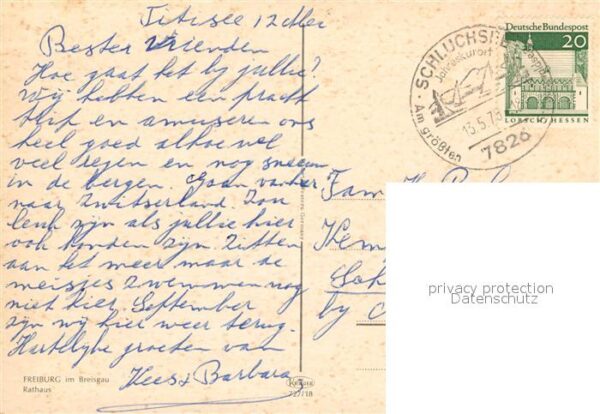 Titisee 12 Mei
Beste Vrienden
Hoe gaat het by jullie?
Wy hebben een pracht
flit en amuseren ons
heel goed alhoewel
veel regen en nog sneeuw
in de bergen. Gaan van hier
naar Zwitserland. Zou
leuk zyn als jullie hier
ook konden zyn. Zitten
aan het meer maar de
meisjes zwemmen nog
niet hier. September
zyn wy hier weer terug.
Hartelyke groeten van
Kees & Barbara
FREIBURG im Breisgau
Rathaus
KRÜGER
727/18
Deutsche Bundespost
20
LORSCH/HESSEN
SCHLUCHSEE
Jahreskurort
Am größten
13.5.7
7826
Fam
by
privacy protection
Datenschutz